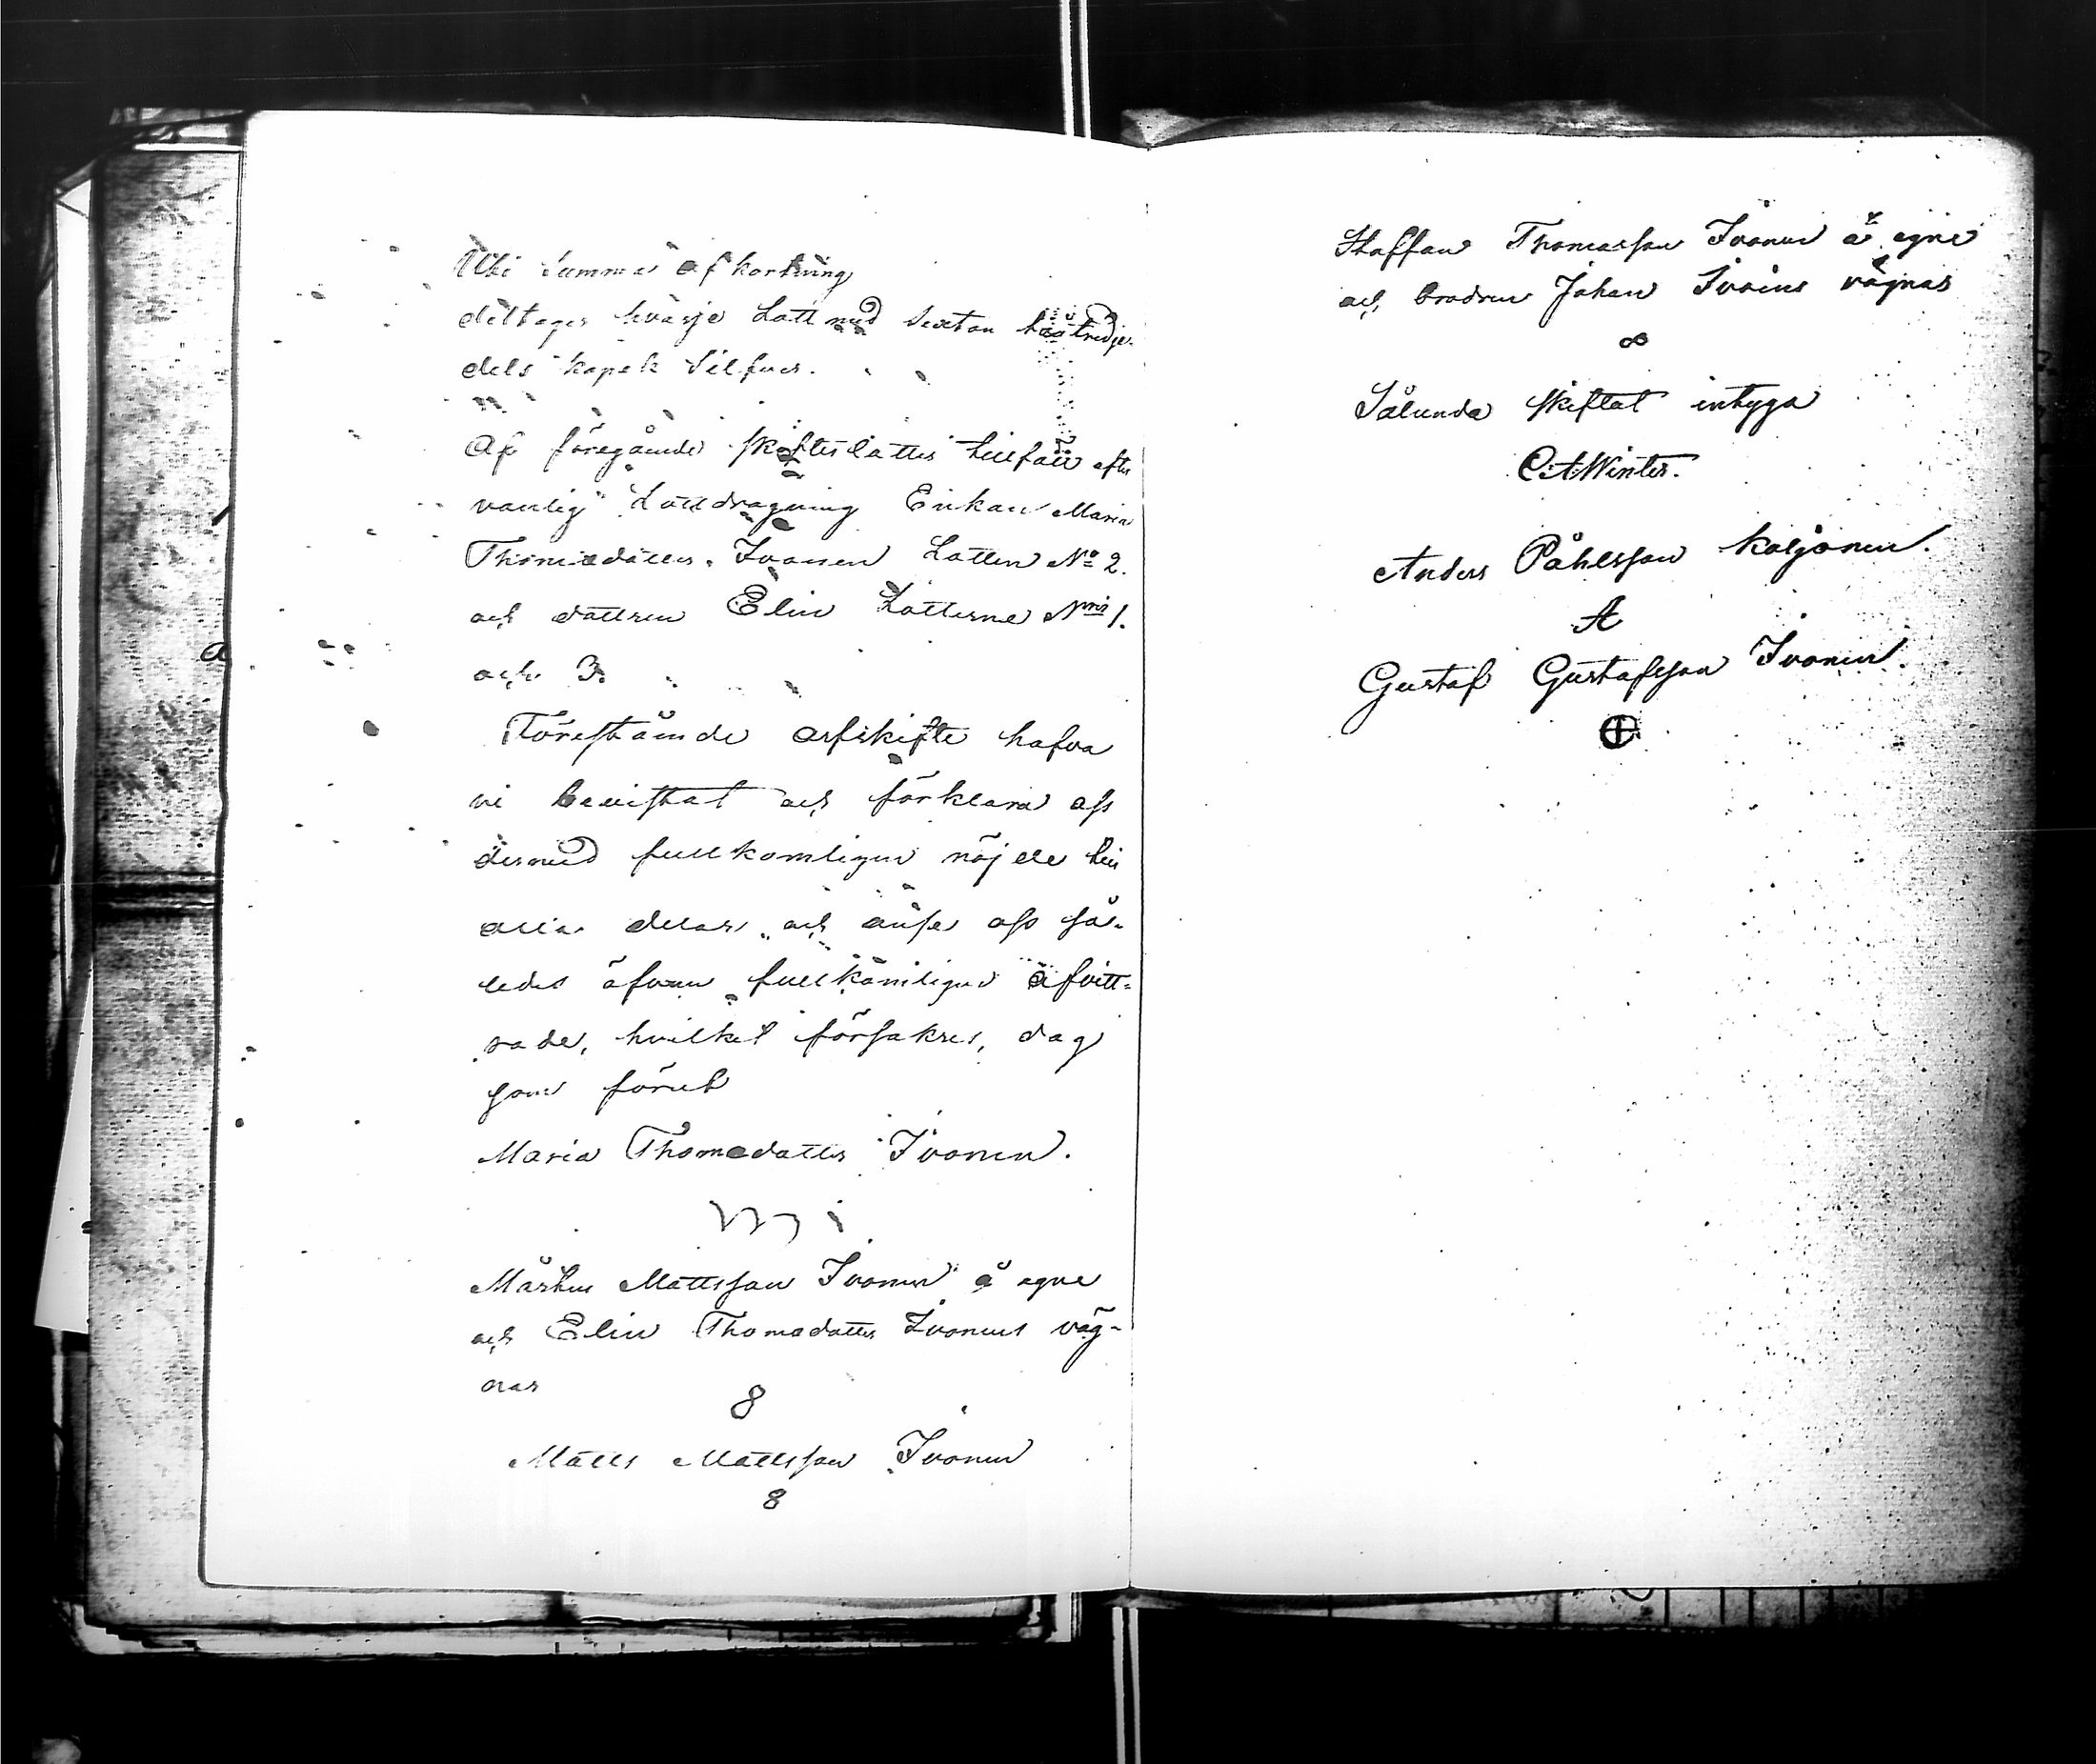 Uti Summa afkortning
deltager hvarje Lott med Sexton två tredje-
dels kopek Silfver.
Af föregående skifteslotter tillföll efter
vanlig Lottdragning Enkan Maria
Thomædotter Ivonen Lotten No 2.
och dottren Elin Lotterne Nris 1.
och 3.
Förestående arfskifte hafva
vi bevistat och förklara oss
dermed fullkomligen nöjde till
alla delar och anse oss så-
ledes äfven fullkomligen afvitt-
rade, hvilket försäkras, dag
som förut
Maria Thomedotter Ivonen.
Mårten Mattsson Ivonen å egne
och Elin Thomadotter Ivonens väg-
nar
8
Matts Mattsson Ivonen
8
Staffan Thomasson Ivonen å egne
och brodren Johan Ivoins vägnar
∞
Sålunda skiftat intyga
C:A:Winter.
Anders Påhlsson Koljonen.
A
Gustaf Gustafsson Ivonen.
⊕
a